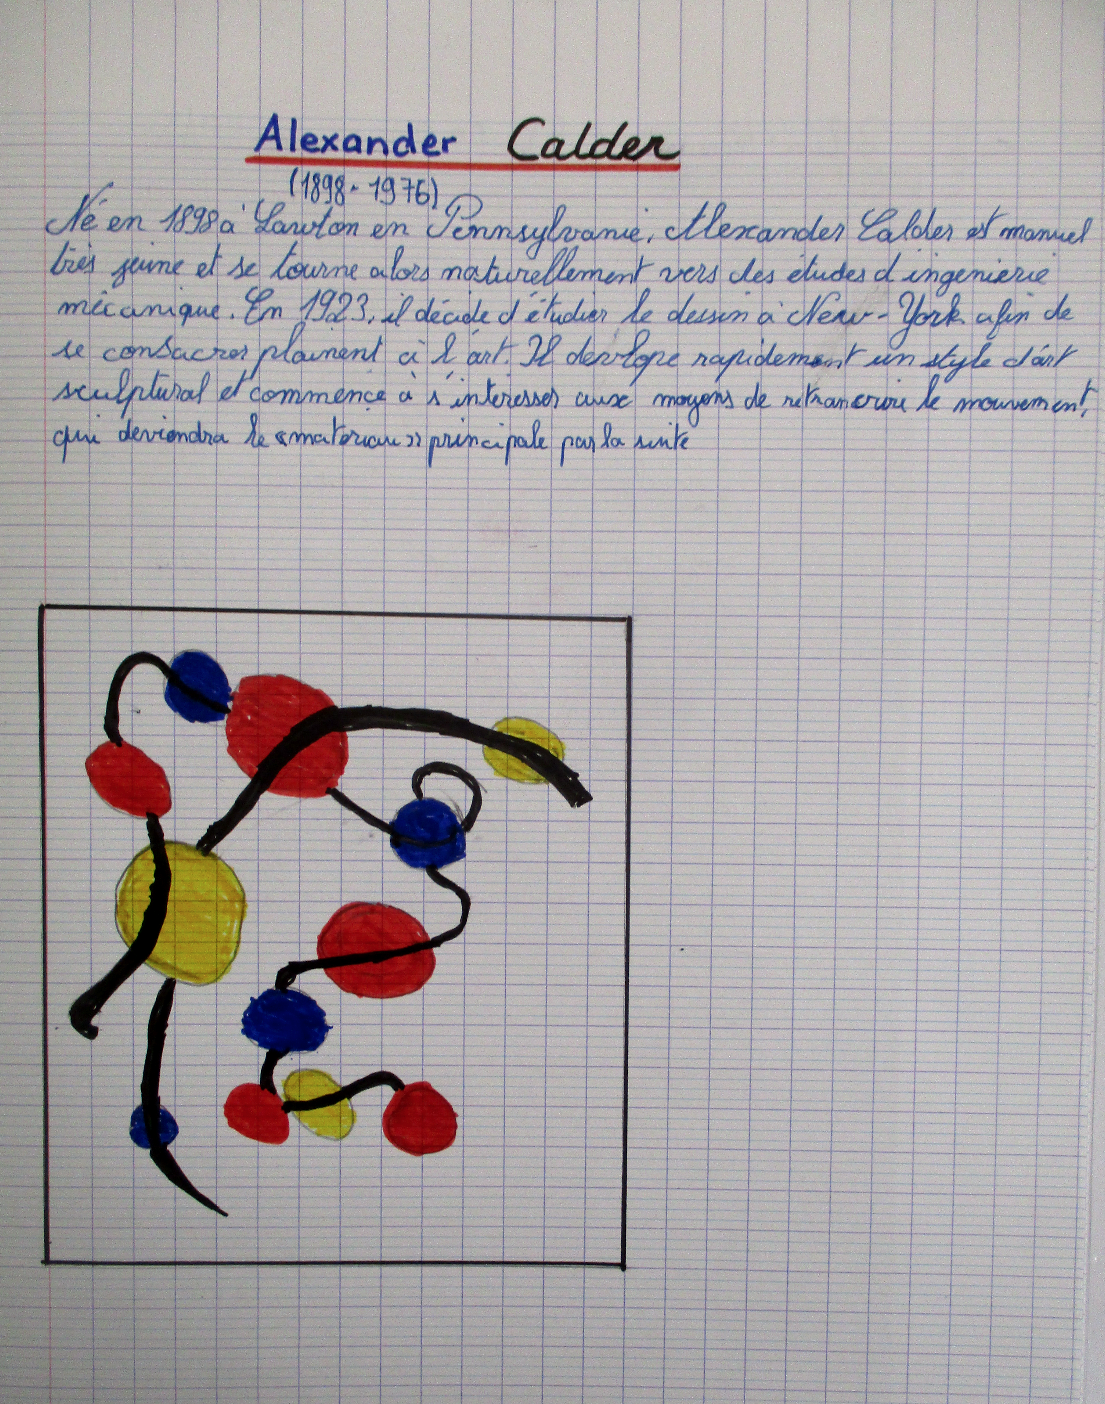 Alexander Calder
(1898-1976)
Né en 1898 à Lawton en Pennsylvanie, Alexander Calder est manuel
très jeune et se tourne alors naturellement vers des études d'ingenierie
mécanique. En 1923, il décide d'étudier le dessin à New-York afin de
se consacrer plainent à l'art. Il devlope rapidement un style d'art
sculptural et commence à s'interesser aux moyens de retrancrire le mouvement,
qui deviendra le «materiau» principale par la suite